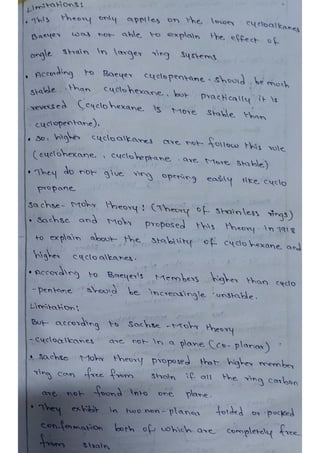 Limitations:
• This theory only applies on the lower cycloalkanes
Baeyer was not able to explain the effect of
angle strain in larger ring systems
• According to Baeyer cyclopentane should be much
stable than cyclohexane, but practically it is
reversed (cyclohexane is more stable than
cyclopentane).
• So, higher cycloalkanes are not follow this rule
(cyclohexane, cycloheptane are more stable)
• They do not give ring opening easily like cyclo
propane
Sachse-Mohr theory: (Theory of strainless rings)
• Sachse and Mohr proposed this theory in 1918
to explain about the stability of cyclohexane and
higher cycloalkanes.
• According to Baeyer's Members higher than cyclo
-pentane should be increasingle unstable.
Limitation:
But according to Sachse-Mohr theory
-cycloalkanes are not in a plane (co-planar)
• Sachse Mohr theory proposed that higher member
ring can free from strain if all the ring carbon
are not found into one plane.
• They exhibit in two non-planar folded or pucked
conformation both of which are completely free
from strain